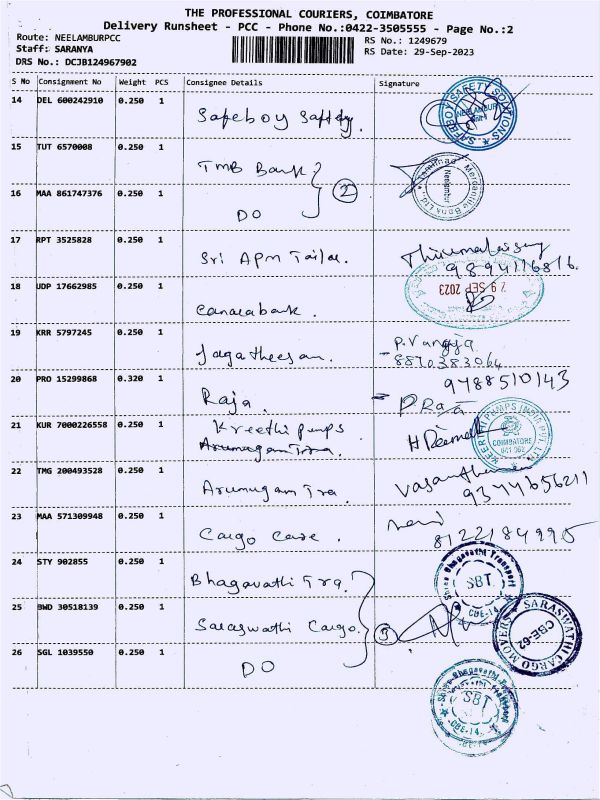 THE PROFESSIONAL COURIERS, COIMBATORE
Delivery Runsheet - PCC - Phone No.:0422-3505555 - Page No.:2
Route: NEELAMBURPCC
RS No.: 1249679
Staff: SARANYA
RS Date: 29-Sep-2023
DRS No.: DCJB124967902
S No Consignment No Weight PCS Consignee Details Signature
14 DEL 600242910 0.250 1 Safeboy Safety.
SAFEBOY SAFETY SOLUTIONS
NEELAMBUR
15 TUT 6570008 0.250 1 TMB Bank
Tamilnad Mercantile Bank Ltd.
Neelambur
2
16 MAA 861747376 0.250 1 DO
17 RPT 3525828 0.250 1 Sri Apm
9894116816.
18 UDP 17662985 0.250 1 Canarabank.
29 SEP 2023
19 KRR 5797245 0.250 1 Jagatheesan.
8870383064
20 PRO 15299868 0.320 1 Raja. P Raja
9788510143
21 KUR 7000226558 0.250 1 Kreethi pumps
Arumugam Tra.
KEERTHI PUMPS INDIA PVT. LTD
COIMBATORE
641 062
22 TMG 200493528 0.250 1 Arumugam Tra.
9344656211
23 MAA 571309948 0.250 1 Cargo Care.
8122184995
24 STY 902855 0.250 1 Bhagavathi Tra.
Shree Bhagavathi Transport
SBT
CBE-14.
25 BWD 30518139 0.250 1 Saraswathi Cargo.
3
SARASWATHI CARGO MOVERS
CBE-62
26 SGL 1039550 0.250 1 DO
Shree Bhagavathi Transport
SBT
CBE-14.